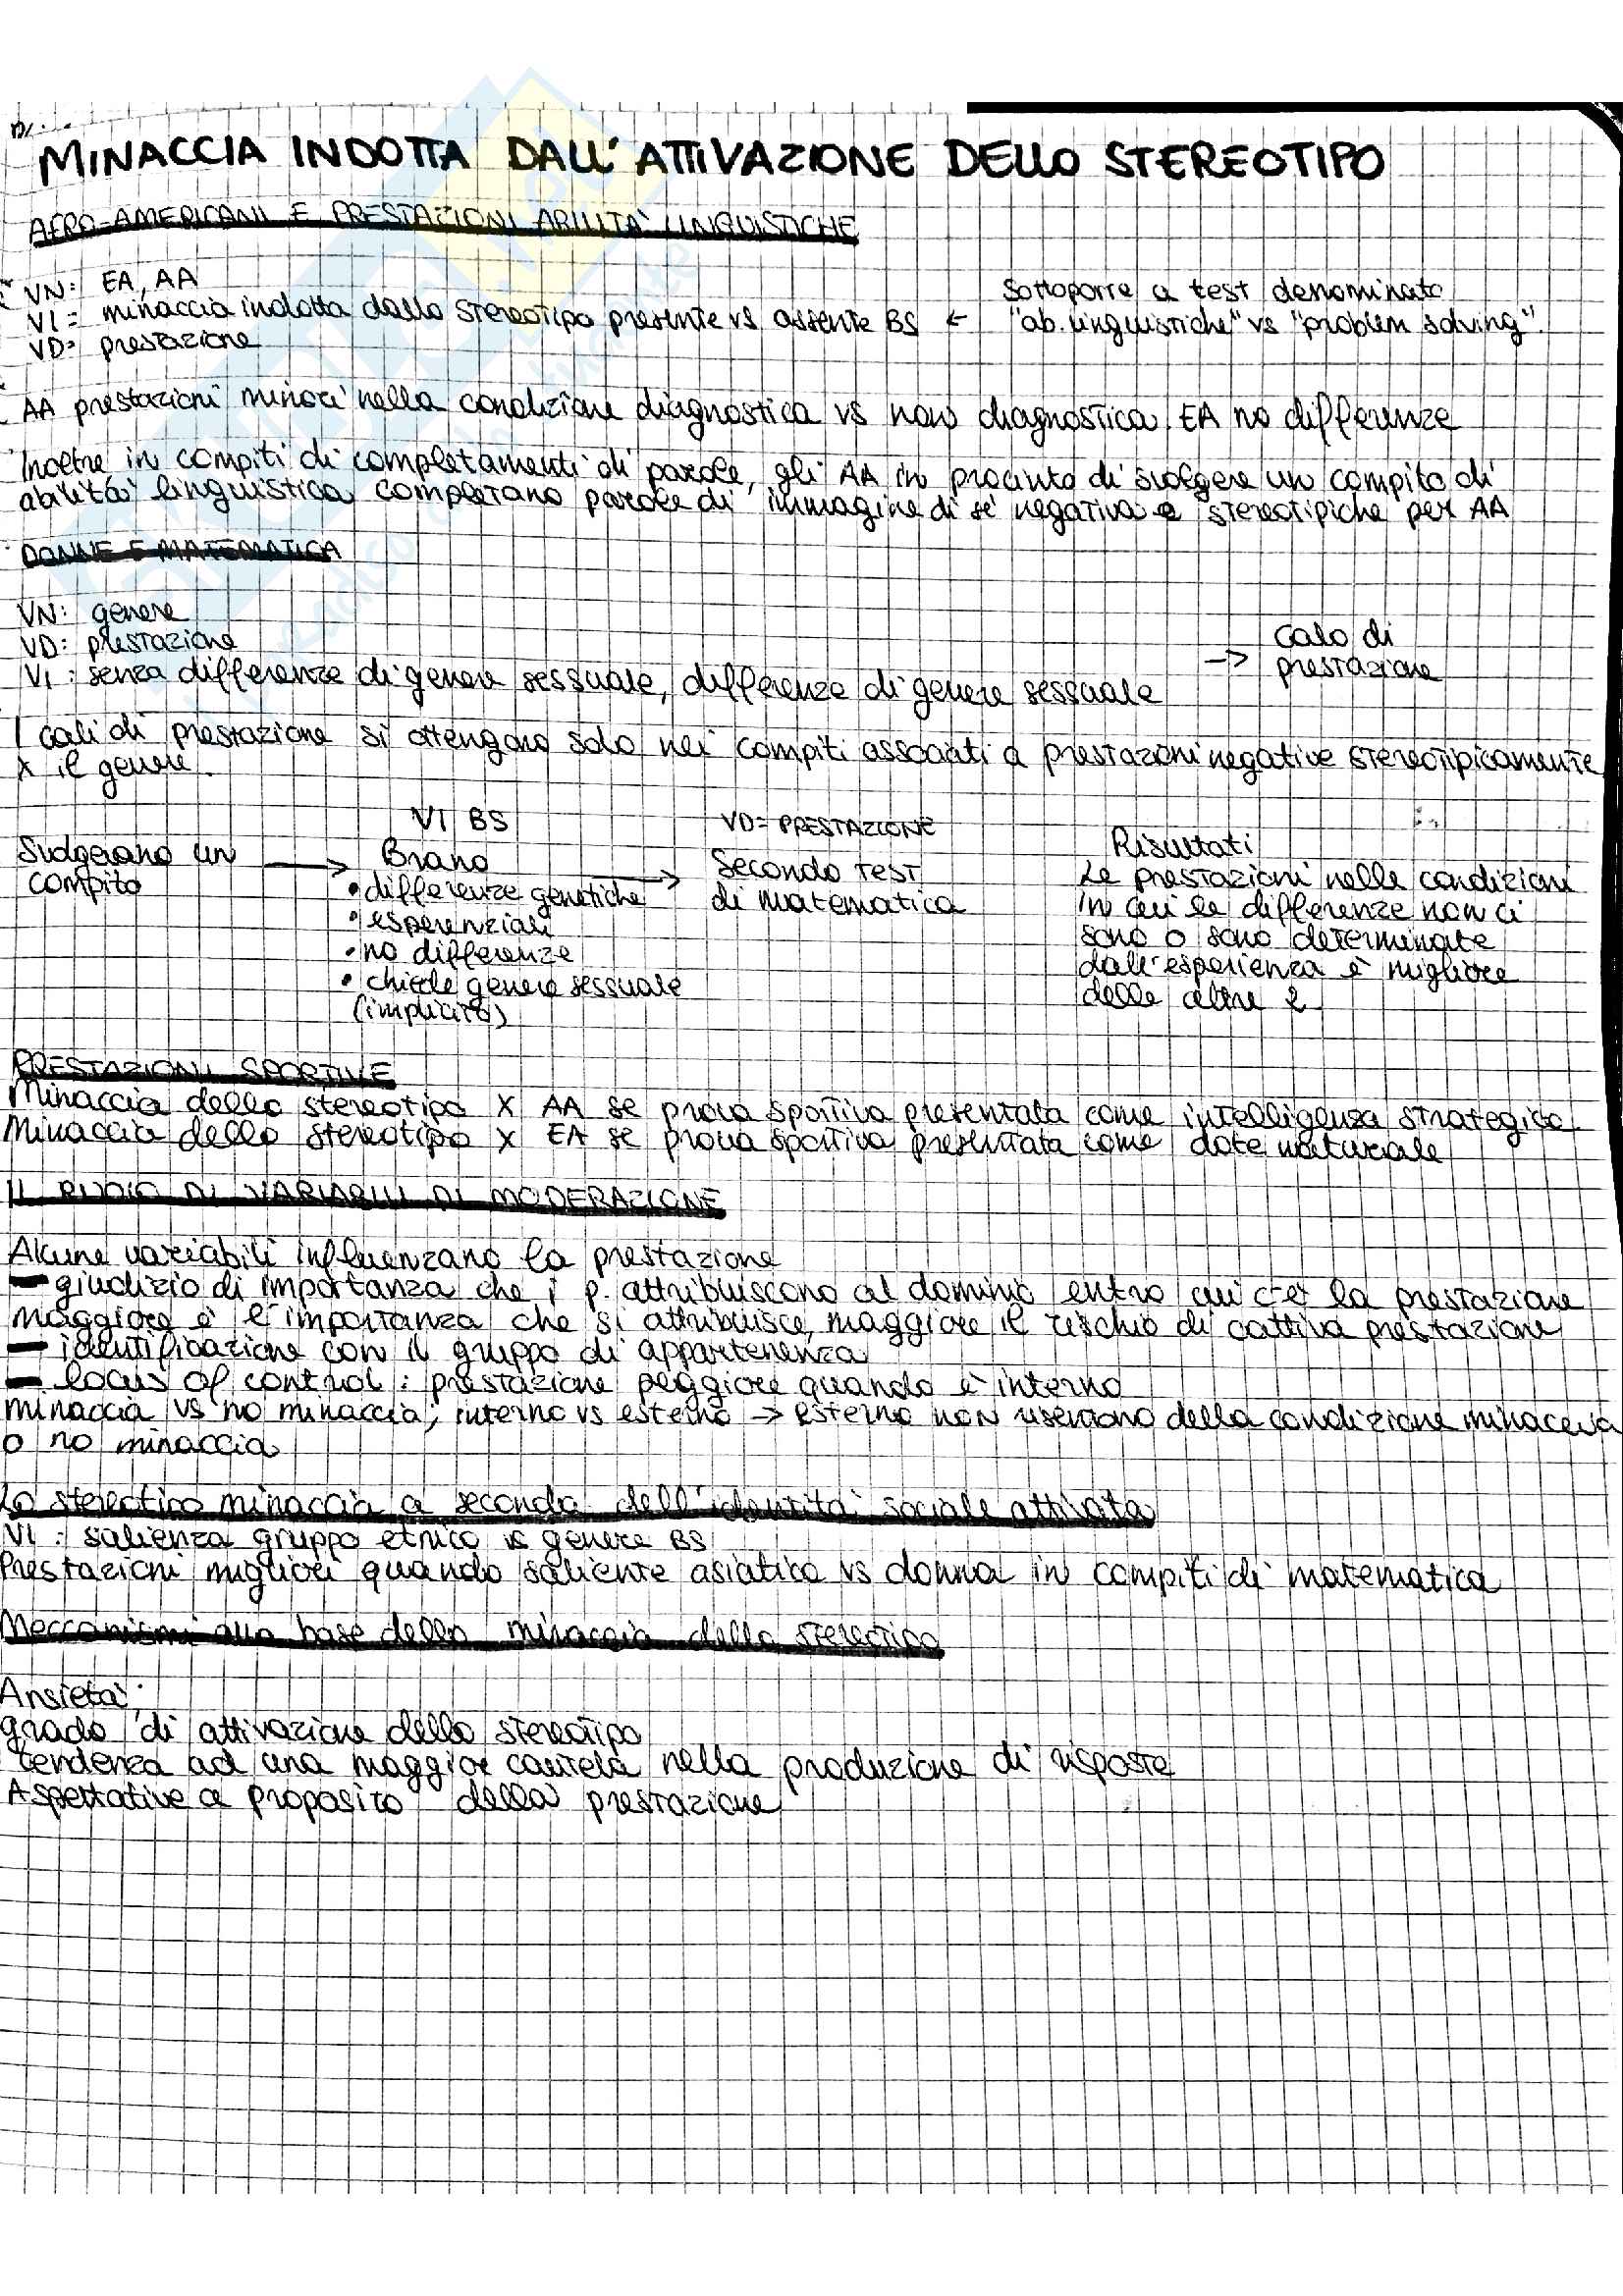 MINACCIA INDOTTA DALL'ATTIVAZIONE DELLO STEREOTIPO
AFRO-AMERICANI E PRESTAZIONI ABILITÀ LINGUISTICHE
VN: EA, AA
VI: minaccia indotta dallo stereotipo presente vs assente BS ← Sottoporre a test denominato "ab. linguistiche" vs "problem solving".
VD: prestazione
AA prestazioni minori nella condizione diagnostica vs non diagnostica. EA no differenze
Inoltre in compiti di completamenti di parole, gli AA in procinto di svolgere un compito di
abilità linguistica completano parole di immagine di sé negativa e stereotipiche per AA
DONNE E MATEMATICA
VN: genere
VD: prestazione
VI: senza differenze di genere sessuale, differenze di genere sessuale → calo di prestazione
I cali di prestazione si ottengono solo nei compiti associati a prestazioni negative stereotipicamente
x il genere.
Svolgevano un compito → VI BS
Brano
• differenze genetiche
• esperenziali
• no differenze
• chiede genere sessuale
(implicito)
→ VD= PRESTAZIONE
Secondo test
di matematica
Risultati
Le prestazioni nelle condizioni
in cui le differenze non ci
sono o sono determinate
dall'esperienza è migliore
delle altre 2
PRESTAZIONI SPORTIVE
Minaccia dello stereotipo x AA se prova sportiva presentata come intelligenza strategica
Minaccia dello stereotipo x EA se prova sportiva presentata come dote naturale
IL RUOLO DI VARIABILI DI MODERAZIONE
Alcune variabili influenzano la prestazione
- giudizio di importanza che i p. attribuiscono al dominio entro cui c'è la prestazione
maggiore è l'importanza che si attribuisce, maggiore il rischio di cattiva prestazione
- identificazione con il gruppo di appartenenza
- locus of control: prestazione peggiore quando è interno
minaccia vs no minaccia; interno vs esterno → esterno non risentono della condizione minaccia
o no minaccia
Lo stereotipo minaccia a seconda dell'identità sociale attivata
VI: salienza gruppo etnico vs genere BS
Prestazioni migliori quando saliente asiatica vs donna in compiti di matematica
Meccanismi alla base della minaccia dello stereotipo
Ansietà;
grado di attivazione dello stereotipo
tendenza ad una maggior cautela nella produzione di risposte
Aspettative a proposito della prestazione